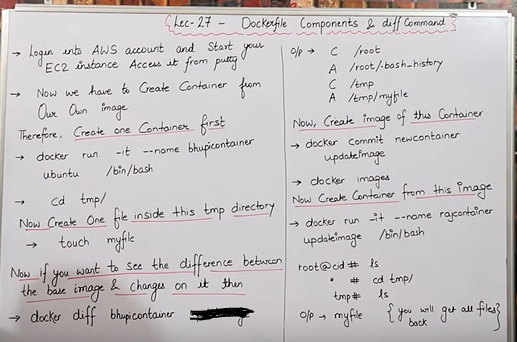 Lec-27 - Dockerfile Components & diff Command
→ Login into AWS account and Start your
EC2 instance Access it from putty
→ Now we have to Create Container from
Our Own image
Therefore, Create one Container first
→ docker run -it --name bhupicontainer
ubuntu /bin/bash
→ cd tmp/
Now Create One file inside this tmp directory
→ touch myfile
Now if you want to see the difference between
the base image & changes on it then
→ docker diff bhupicontainer
o/p → C /root
A /root/.bash_history
C /tmp
A /tmp/myfile
Now, Create image of this Container
→ docker commit newcontainer
updateimage
→ docker images
Now Create Container from this image
→ docker run -it --name rajcontainer
updateimage /bin/bash
root@cid # ls
" # cd tmp/
tmp# ls
o/p → myfile { you will get all files
back }